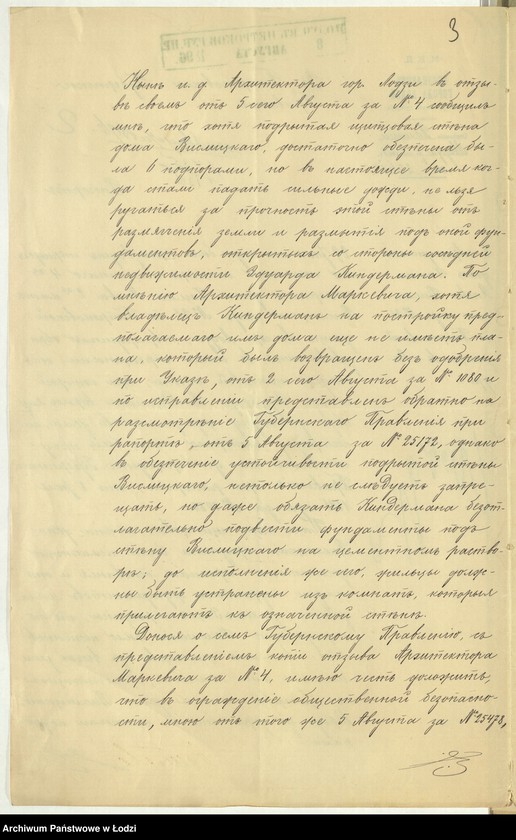 3
Нынѣ и. д. Архитектора гор. Лодзи въ отзы-
вѣ своемъ отъ 5 сего Августа за № 4 сообщилъ
мнѣ, что хотя подрытая щитовая стѣна
дома Вислицкаго, достаточно обезпечена бы-
ла 6 подпорами, но въ настоящее время ког-
да стали падать сильные дожди, нельзя
ручаться за прочность этой стѣны отъ
размягченія земли и размытія подъ оной фун-
даментовъ, открытыхъ со стороны сосѣдней
недвижимости Эдуарда Киндермана. По
мнѣнію Архитектора Маркевича, хотя
владѣлецъ Киндерманъ на постройку пред-
полагаемаго имъ дома еще не имѣетъ пла-
на, который былъ возвращенъ безъ одобренія
при Указѣ, отъ 2 сего Августа за № 1080 и
по исправленіи представленъ обратно на
разсмотрѣніе Губернскаго Правленія при
рапортѣ, отъ 5 Августа за № 25172, однако
въ обезпеченіе устойчивости подрытой стѣны
Вислицкаго, нетолько не слѣдуетъ запре-
щать, но даже обязать Киндермана безот-
лагательно подвести фундаменты подъ
стѣну Вислицкаго на цементномъ раство-
рѣ; до исполненія же сего, жильцы долж-
ны быть устранены изъ комнатъ, которыя
прилегаютъ къ означенной стѣнѣ.
Донося о семъ Губернскому Правленію, съ
представленіемъ копіи отзыва Архитектора
Маркевича за № 4, имѣю честь доложить,
что въ огражденіе общественной безопасно-
сти, мною отъ того же 5 Августа за № 25478,
Archiwum Państwowe w Łodzi